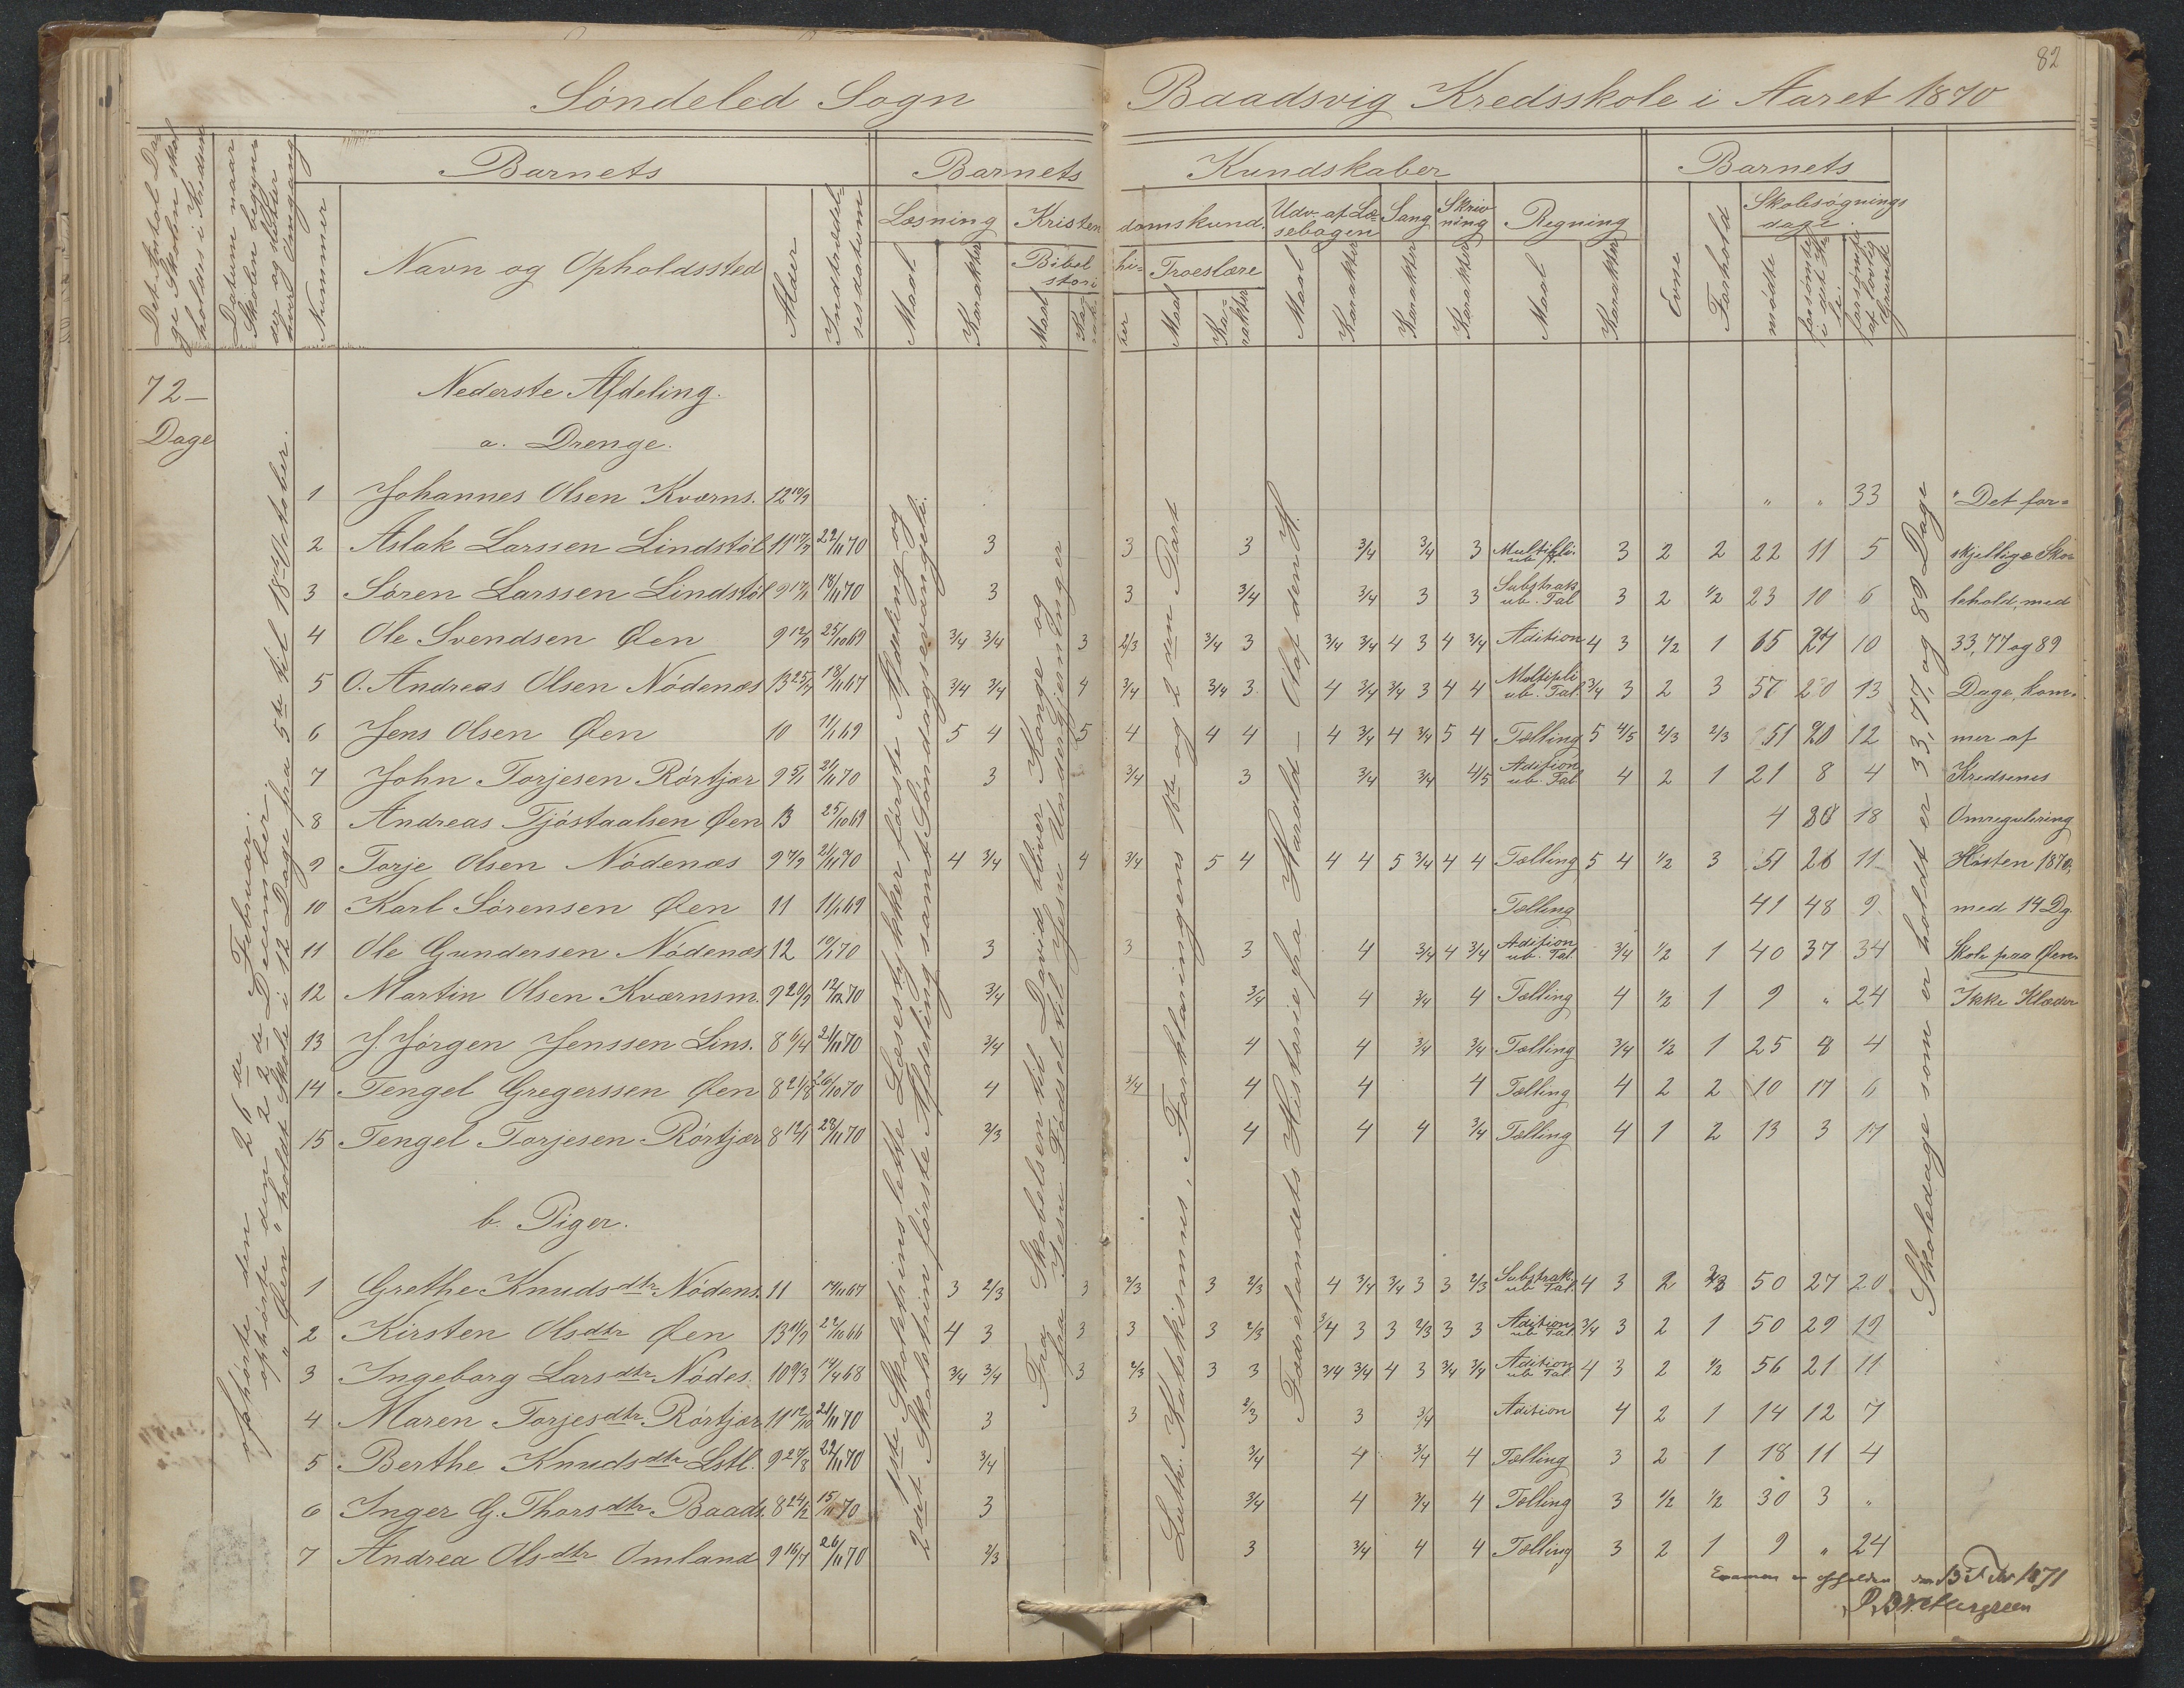 82
Søndeled Sogn Baadsvig Kredsskole i Aaret 1870
Det Antal Dage Skolen skal holdes i Kredsen
Datum naar Skolen begynder og slutter hver Omgang
Barnets
Nummer
Navn og Opholdssted
Alder
Indtrædelsesdatum
Barnets Kundskaber
Læsning
Maal
Karakter
Kristendomskund.
Bibelhistorier
Maal
Troeslære
Maal
Karakter
Udv. af Læsebogen
Maal
Karakter
Sang
Karakter
Skrivning
Karakter
Regning
Maal
Karakter
Barnets
Evne
Forhold
Skolesøgningsdage.
mødte
forsømte i det Hele.
forsømte af lovlig Grund
72-
Dage
Nederste Afdeling.
a. Drenge.
1 Johannes Olsen Kværns. 12 10/9 " " 33 "Det for=
2 Aslak Larssen Lindstøl 11 17/9 22/11 70 3 3 3 3/4 3/4 3 Multipli. ub. T. 3 2 2 22 11 5 skjellige Sko=
3 Søren Larssen Lindstøl 9 17/11 18/11 70 3 3 3/4 3/4 3 3 Substrak. ub. Tal 3 2 1/2 23 10 6 lehold, med
4 Ole Svendsen Øen 9 12/9 25/10 69 3/4 3/4 3 2/3 3/4 3 3/4 3/4 4 3 4 3/4 Adition 4 3 1/2 1 65 27 10 33, 77 og 89
5 O. Andreas Olsen Nødenæs 13 25/7 18/11 67 3/4 3/4 4 3/4 3/4 3 4 3/4 3/4 3 4 4 Multipli ub. Tal. 3/4 3 2 3 57 20 13 Dage, kom=
6 Jens Olsen Øen 10 11/1 69 5 4 5 4 4 4 4 3/4 4 3/4 5 4 Tælling 5 4/5 2/3 2/3 51 20 12 mer af
7 John Torjesen Rørtjær 9 5/1 21/11 70 3 3/4 3 3/4 3/4 4/5 Adition ub. Tal 4 2 1 21 8 4 Kredsenes
8 Andreas Tjøstaalsen Øen 13 25/10 69 4 88 18 Omregulering
9 Torje Olsen Nødenæs 9 7/9 21/11 70 4 3/4 4 3/4 5 4 4 4 5 3/4 4 4 Tælling 5 4 1/2 3 51 26 11 Høsten 1870,
10 Karl Sørensen Øen 11 11/1 69 Tælling 41 48 9 med 14 Dg.
11 Ole Gundersen Nødenæs 12 10/1 70 3 3 3 4 3/4 4 3/4 Adition ub. Tal 3/4 1/2 1 40 37 34 Skole paa Øen.
12 Martin Olsen Kværnsm. 9 20/9 12/12 70 3/4 3/4 4 3/4 4 Tælling 4 1/2 1 9 " 24 Ikke Klæder
13 J. Jørgen Jenssen Lins. 8 6/4 21/11 70 3/4 4 4 3/4 3/4 Tælling 3/4 1/2 1 25 8 4
14 Tengel Gregerssen Øen 8 21/8 26/10 70 4 3/4 4 4 4 Tælling 4 2 2 10 17 6
15 Tengel Torjesen Rørtjær 8 12/1 28/11 70 2/3 4 4 4 3/4 Tælling 4 1 2 13 3 17
b. Piger.
1 Grethe Knudsdtr. Nødens. 11 14/11 67 3 2/3 3 2/3 3 2/3 4 3/4 3/4 3 3 2/3 Substrak. ub Tal. 4 3 2 2/3 50 27 20
2 Kirsten Olsdtr Øen 13 11/9 22/10 66 4 3 3 3 3 2/3 3/4 3 3 2/3 3 3 Adition ub Tal. 3/4 3 2 1 50 29 19
3 Ingeborg Larsdtr. Nødes. 10 9/3 14/4 68 3/4 3/4 3 2/3 3 3 3/4 3/4 4 3 3/4 3/4 Adition ub Tal 4 3 2 1/2 56 21 11
4 Maren Torjesdtr. Rørtjær 11 12/10 21/11 70 3 3 2/3 3 3/4 Adition 4 2 1 14 12 7
5 Berthe Knudsdtr. Lstl. 9 27/8 22/11 70 3/4 3/4 4 3/4 4 Tælling 3 2 1 18 11 4
6 Inger G. Thorsdtr. Baads. 8 24/12 15/11 70 3 3/4 4 3/4 4 Tælling 3 1/2 1/2 30 3 "
7 Andrea Olsdtr. Omland 9 16/7 26/11 70 2/3 3 3/4 4 4 Tælling 3 2 1 9 " 24
ophørte den 26de Februar.
ophørte den 22de December.
" Øen " holdt Skole i 12 Dage fra 5te til 18de October.
1ste Skoletrins lette Læsestykker første Afdeling og
2det Skoletrin første Afdeling samt Søndagsevangeli.
Fra Skabelsen til David bliver Konge og
fra Jesu Fødsel til Jesu Undergjerninger
Luth. Katekismus, Forklaringens 1ste og 2den Part
Fædrelandets Historie fra Harald – Olaf den H.
Skoledage som er holdt er 33, 77, og 89 Dage
Examen er afholden den 13de Febr 1871